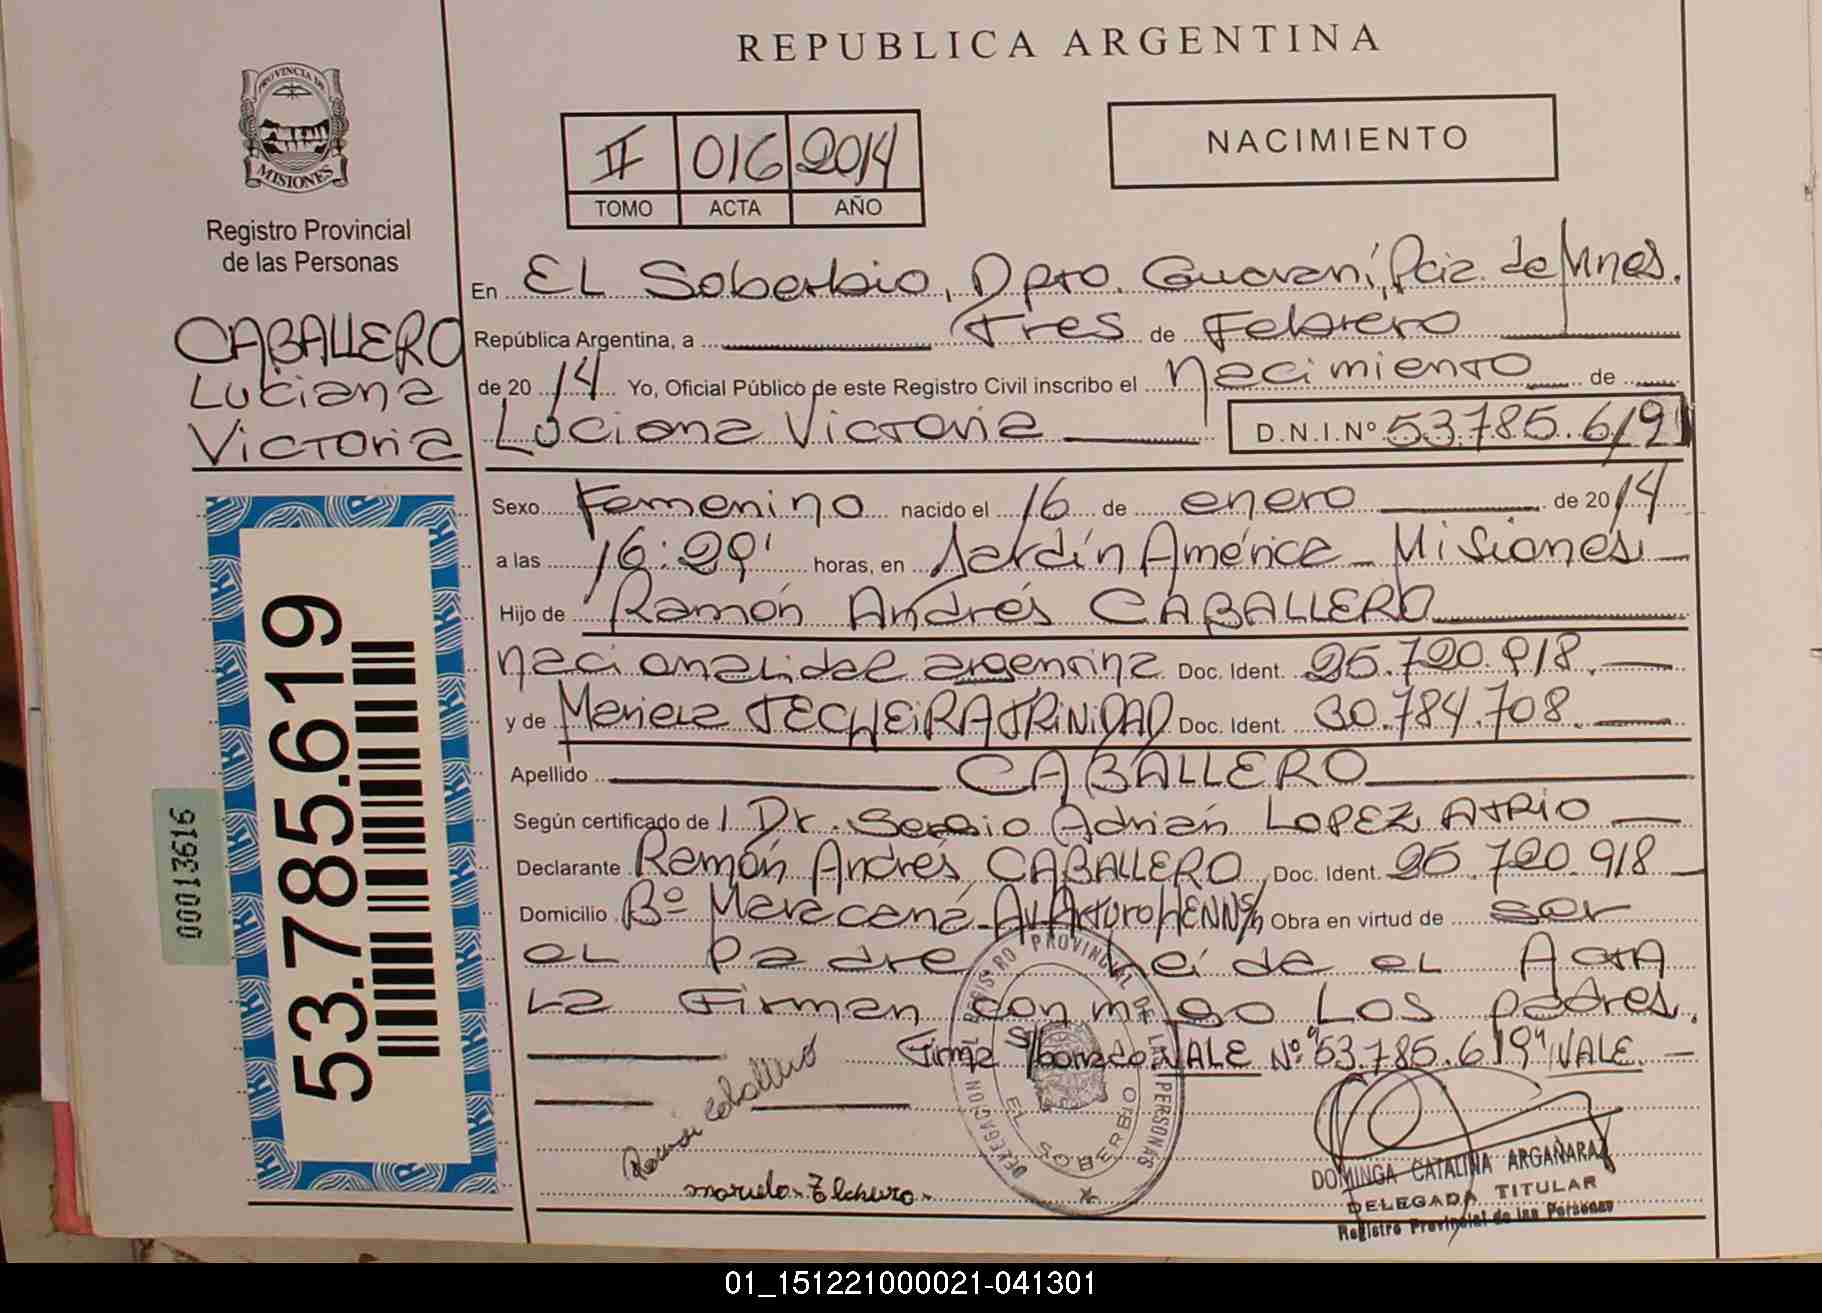 REPUBLICA ARGENTINA
PROVINCIA DE
MISIONES
Registro Provincial
de las Personas
II 016 2014
TOMO ACTA AÑO
NACIMIENTO
En EL Soberbio, Dpto. Guaraní, Pcia. de Mnes.
República Argentina, a Tres de Febrero
de 20 14 Yo, Oficial Público de este Registro Civil inscribo el Nacimiento de
Luciana Victoria D.N.I.Nº 53.785.619
CABALLERO
Luciana
Victoria
Sexo Femenino nacido el 16 de enero de 2014
a las 16:29' horas, en Jardín América - Misiones
Hijo de Ramón Andrés CABALLERO
nacionalidad argentina Doc. Ident. 25.720.918.
y de Mariela TECHEIRA TRINIDAD Doc. Ident. 30.784.708.
Apellido CABALLERO
Según certificado de Dr. Sergio Adrián LOPEZ ATRIO
Declarante Ramón Andrés CABALLERO, Doc. Ident. 25.720.918
Domicilio Bº Maracaná - Av Arturo HENN S/n, Obra en virtud de ser
el padre Leída el Acta
La Firman conmigo Los padres.
Firma S/borrado VALE Nº "53.785.619" VALE.
53.785.619
00013616
REGISTRO PROVINCIAL DE LAS PERSONAS
DELEGACION
EL SOBERBIO
DOMINGA CATALINA ARGAÑARAZ
DELEGADA TITULAR
Registro Provincial de las Personas
01_151221000021-041301